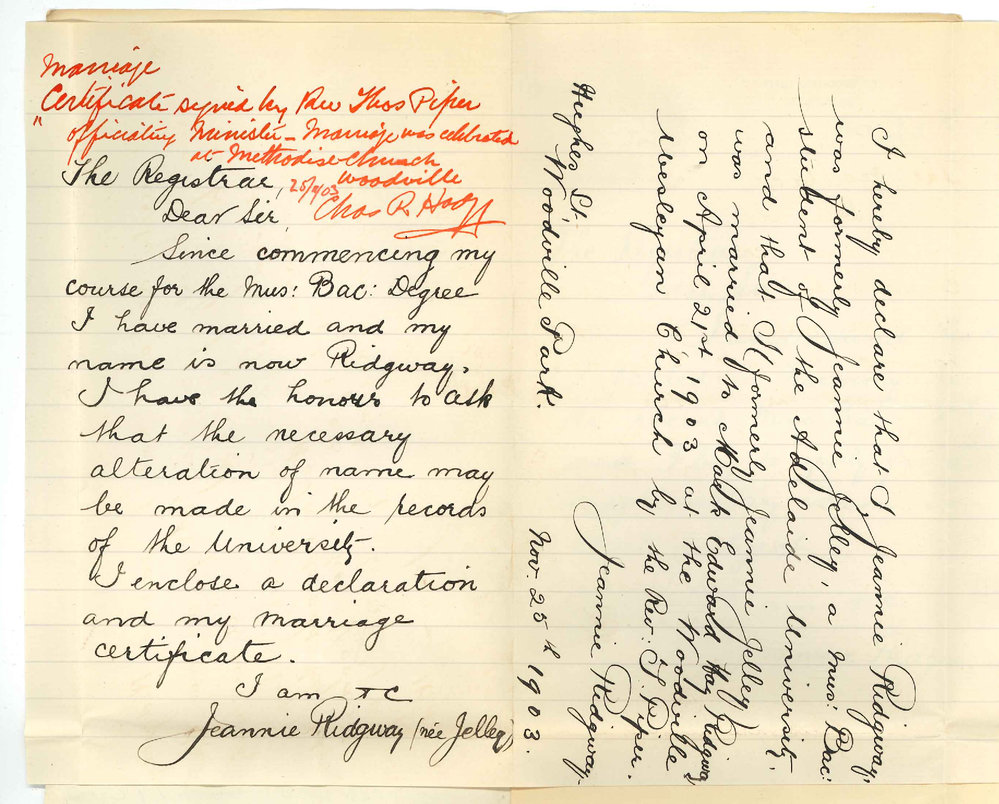 Marriage
"Certificate signed by Rev Thos Piper
officiating Minister – Marriage was celebrated
at Methodist Church
Woodville
25/11/03
Chas R Hodge
The Registrar,
Dear Sir,
Since commencing my
course for the Mus: Bac: Degree
I have married and my
name is now Ridgway.
I have the honour to ask
that the necessary
alteration of name may
be made in the records
of the University.
I enclose a declaration
and my marriage
certificate.
I am &c
Jeannie Ridgway (née Jelley)
I hereby declare that I Jeannie Ridgway,
was formerly Jeannie Jelley, a Mus: Bac:
student of the Adelaide University,
and that I (formerly Jeannie Jelley)
was married to Mark Edward Hay Ridgway
on April 21st 1903 at the Woodville
Wesleyan Church by the Rev: T. Piper.
Jeannie Ridgway.
Hughes St,
Woodville Park.
Nov. 25th 1903.